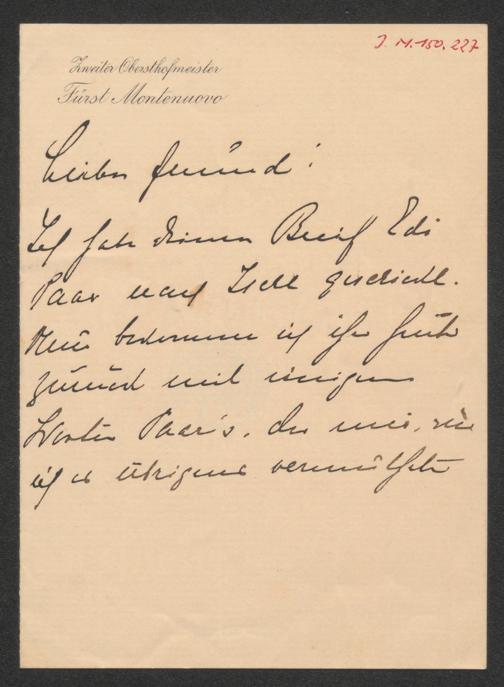 J. N. 150.227
Zweiter Obersthofmeister
Fürst Montenuovo
Lieber Freund!
Ich habe deinen Brief Edi
Paar nach Ischl geschickt.
Nun bekomme ich ihn heute
zurück mit einigen
Worten Paar's, der mir, wie
ich es übrigens vermuthete